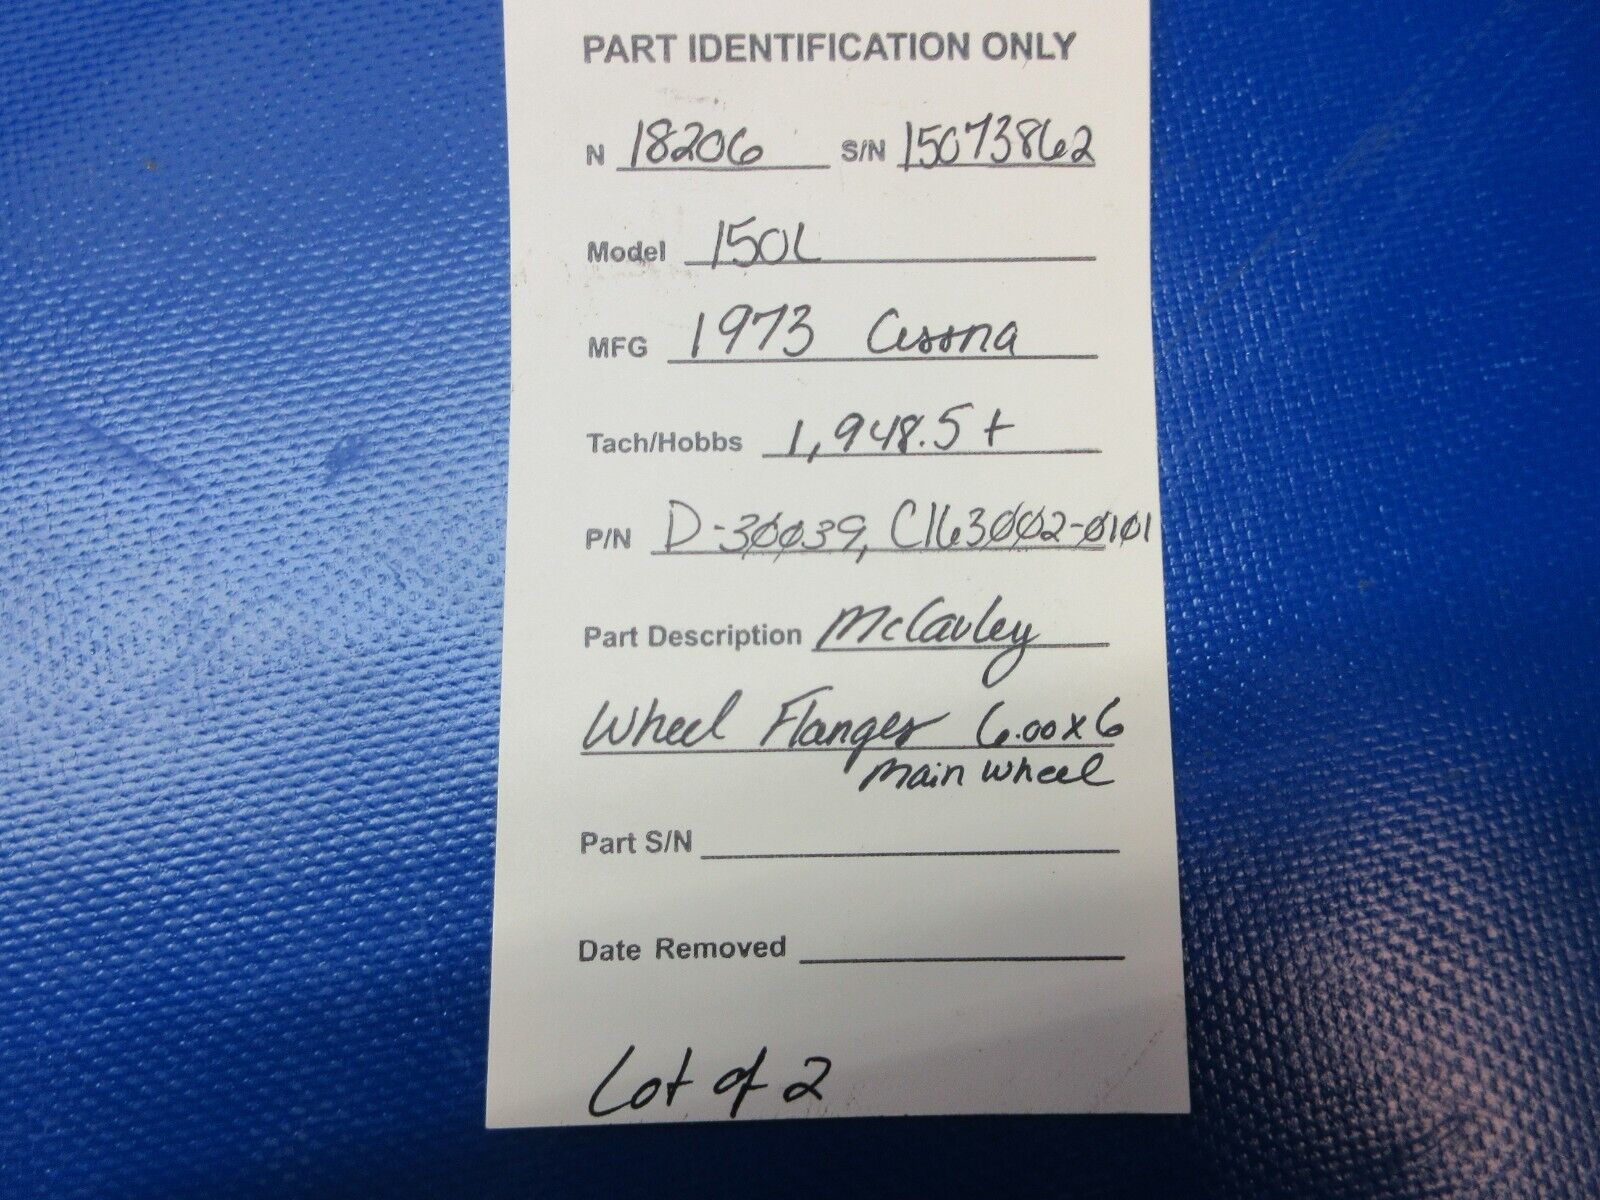 PART IDENTIFICATION ONLY
N 18206 S/N 15073862
Model 150L
MFG 1973 Cessna
Tach/Hobbs 1,948.5+
P/N D-30039, C163002-0101
Part Description McCauley
Wheel Flanges 6.00x6
Main Wheel
Part S/N
Date Removed
Lot of 2